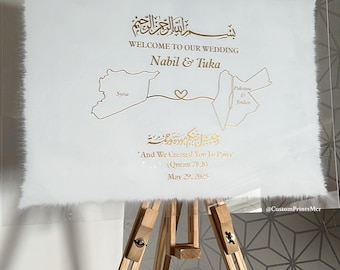 بسم الله الرحمن الرحيم
WELCOME TO OUR WEDDING
Nabil & Tuka
Syria
Palestine
&
Jordan
"And We Created You In Pairs"
(Quran 78:8)
May 29, 2025
@CustomPrintsMcr